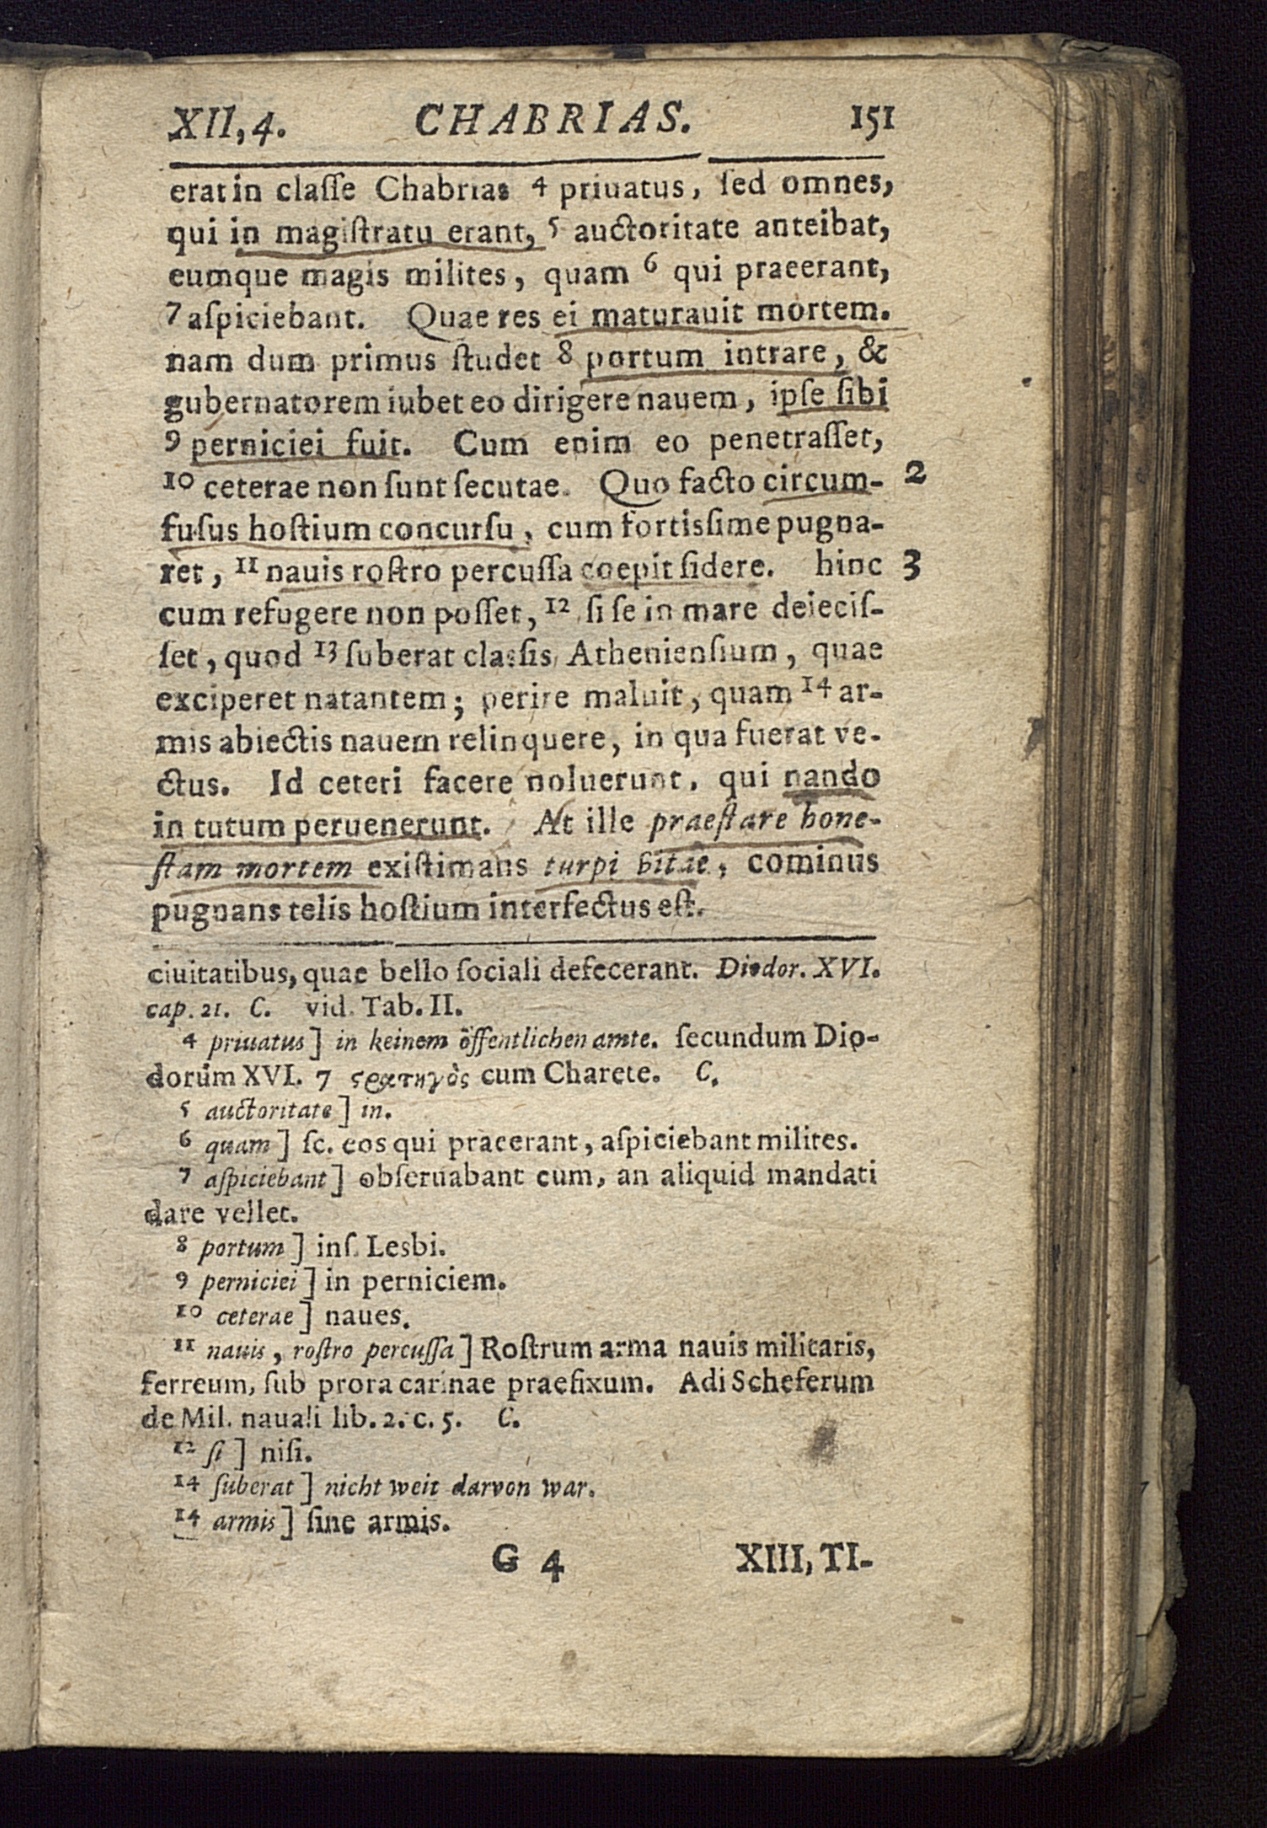 XII, 4. CHABRIAS. 151
erat in claſſe Chabrias 4 priuatus, ſed omnes,
qui in magiſtratu erant, 5 auctoritate anteibat,
eumque magis milites, quam 6 qui praeerant,
7 aſpiciebant. Quae res ei maturauit mortem.
nam dum primus ſtudet 8 portum intrare, &
gubernatorem iubet eo dirigere nauem, ipſe ſibi
9 perniciei fuit. Cum enim eo penetraſſet,
10 ceterae non ſunt ſecutae. Quo facto circum- 2
fuſus hoſtium concurſu, cum fortisſime pugna-
ret, 11 nauis roſtro percuſſa coepit ſidere. hinc 3
cum refugere non poſſet, 12 ſi ſe in mare deieciſ-
ſet, quod 13 ſuberat clasſis Athenienſium, quae
exciperet natantem; perire maluit, quam 14 ar-
mis abiectis nauem relinquere, in qua fuerat ve-
ctus. Id ceteri facere noluerunt, qui nando
in tutum peruenerunt. At ille praeſtare hone-
ſtam mortem exiſtimans turpi vitae, cominus
pugnans telis hoſtium interfectus eſt.
ciuitatibus, quae bello ſociali defecerant. Diodor. XVI.
cap. 21. C. vid. Tab. II.
4 priuatus] in keinem öffentlichen amte. ſecundum Dio-
dorum XVI. 7 ςρατηγὸς cum Charete. C.
5 auctoritate] in.
6 quam] ſc. eos qui praeerant, aſpiciebant milites.
7 aſpiciebant] obſeruabant eum, an aliquid mandati
dare vellet.
8 portum] inſ. Lesbi.
9 perniciei] in perniciem.
10 ceterae] naues.
11 nauis, roſtro percuſſa] Roſtrum arma nauis militaris,
ferreum, ſub prora carinae praefixum. Adi Scheferum
de Mil. nauali lib. 2. c. 5. C.
12 ſi] niſi.
14 ſuberat] nicht weit darvon war.
14 armis] ſine armis.
G 4 XIII, TI-